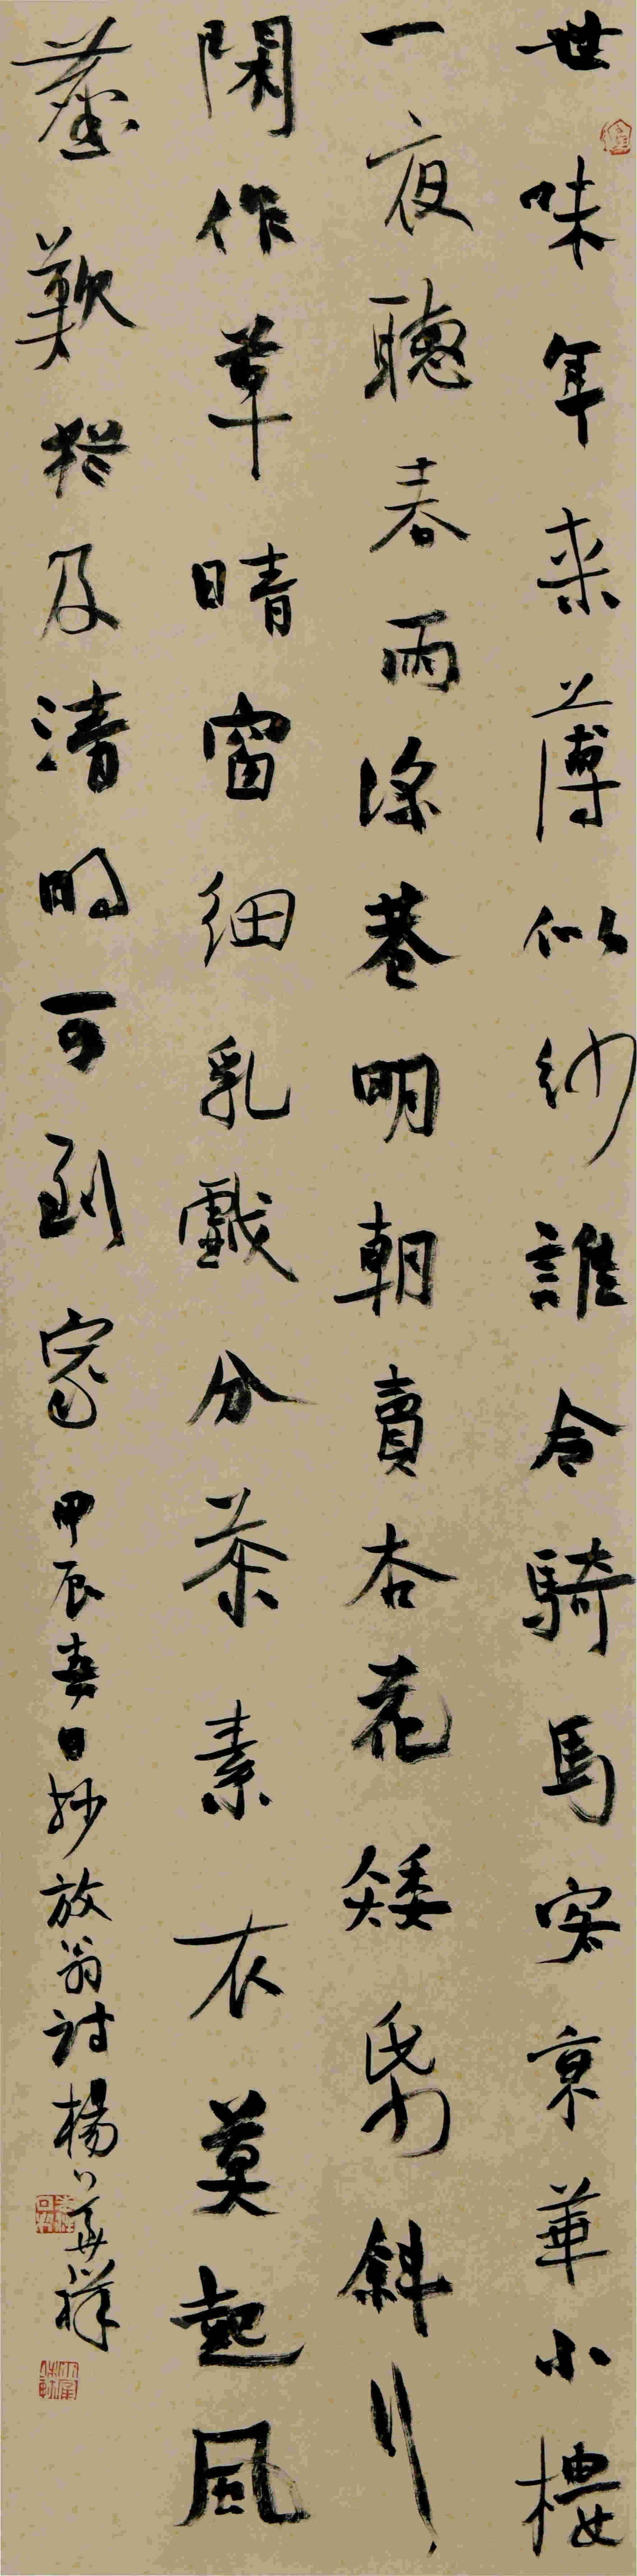 世味年来薄似紗誰令騎馬客京華小樓
一夜聽春雨深巷明朝賣杏花矮紙斜行
閑作草晴窗細乳戲分茶素衣莫起風
塵歎猶及清明可到家甲辰春日抄放翁詩楊華祥